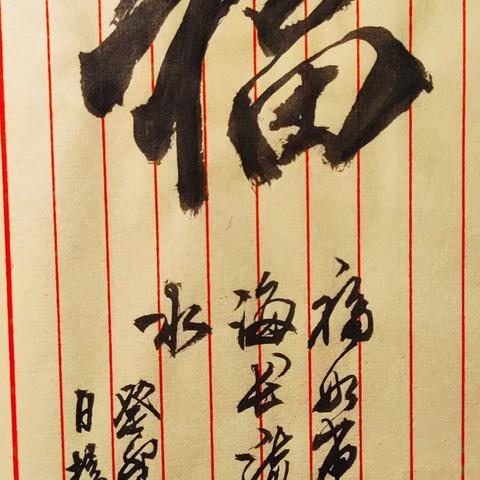 福
福如東
海長流
水
癸卯
日